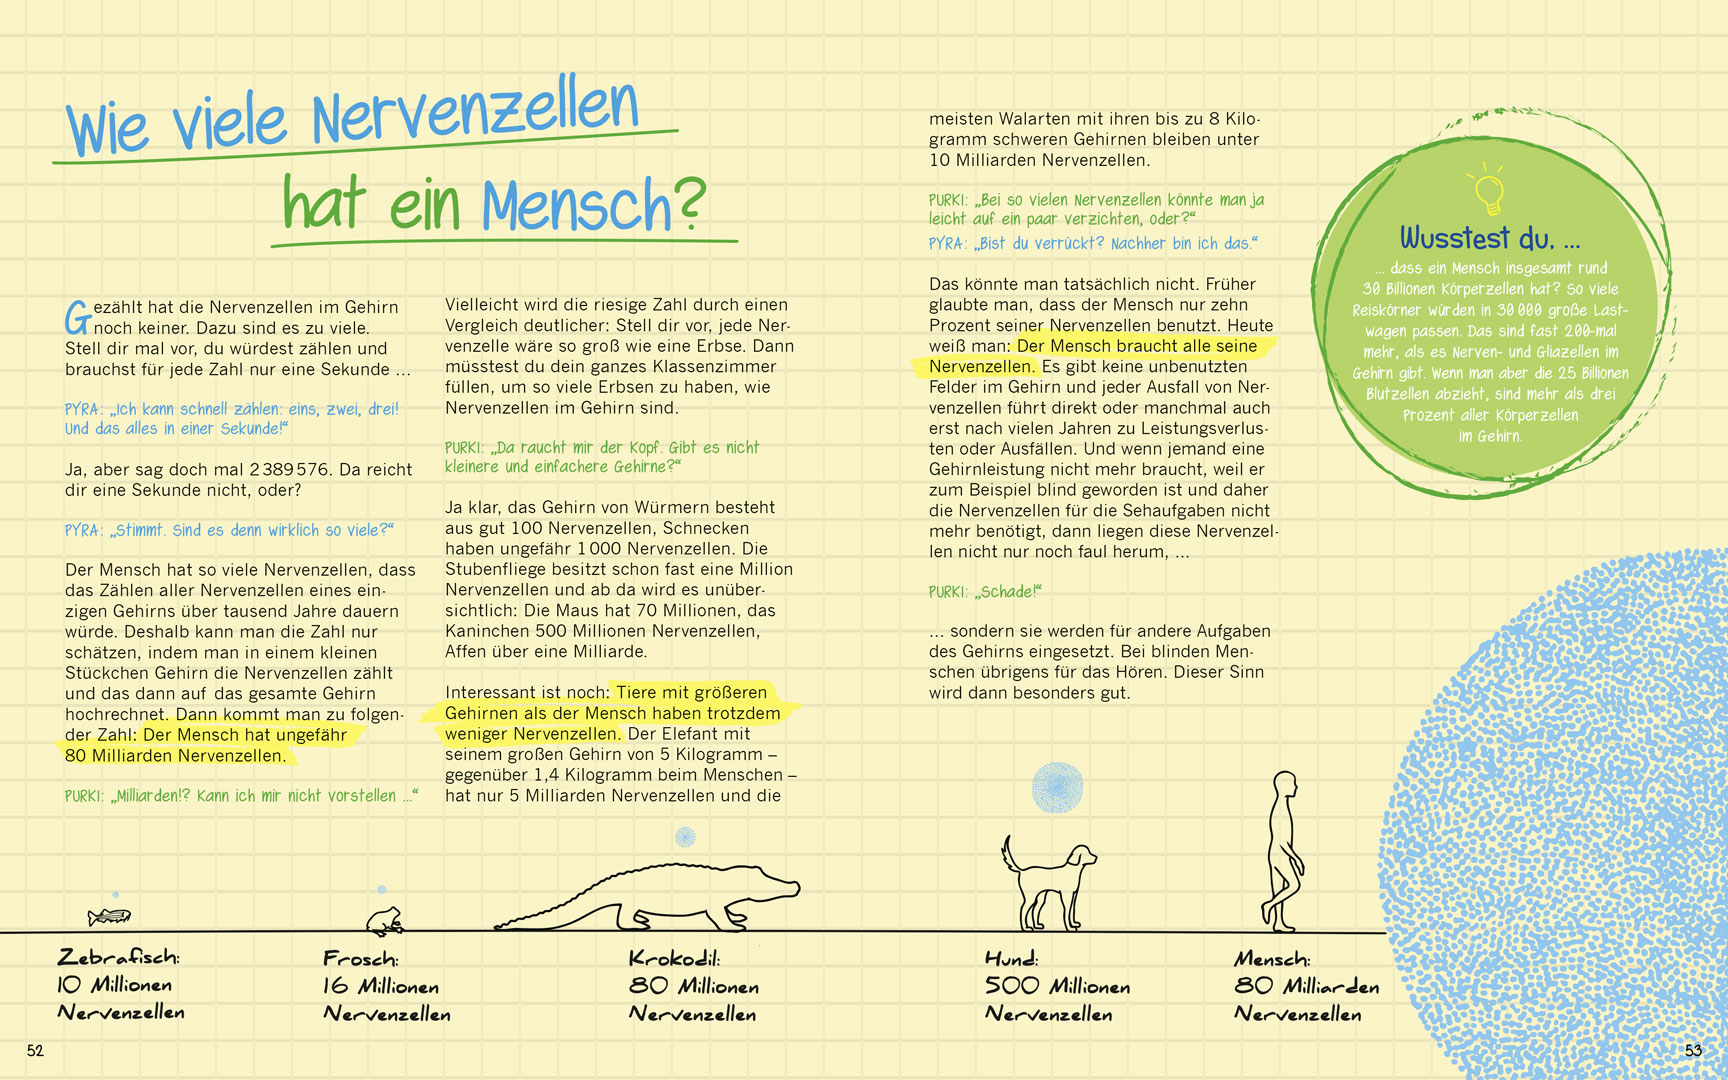 Wie viele Nervenzellen
hat ein Mensch?
Gezählt hat die Nervenzellen im Gehirn
noch keiner. Dazu sind es zu viele.
Stell dir mal vor, du würdest zählen und
brauchst für jede Zahl nur eine Sekunde ...
PYRA: „Ich kann schnell zählen: eins, zwei, drei!
Und das alles in einer Sekunde!“
Ja, aber sag doch mal 2 389 576. Da reicht
dir eine Sekunde nicht, oder?
PYRA: „Stimmt. Sind es denn wirklich so viele?“
Der Mensch hat so viele Nervenzellen, dass
das Zählen aller Nervenzellen eines ein-
zigen Gehirns über tausend Jahre dauern
würde. Deshalb kann man die Zahl nur
schätzen, indem man in einem kleinen
Stückchen Gehirn die Nervenzellen zählt
und das dann auf das gesamte Gehirn
hochrechnet. Dann kommt man zu folgen-
der Zahl: Der Mensch hat ungefähr
80 Milliarden Nervenzellen.
PURKI: „Milliarden!? Kann ich mir nicht vorstellen ...“
Vielleicht wird die riesige Zahl durch einen
Vergleich deutlicher: Stell dir vor, jede Ner-
venzelle wäre so groß wie eine Erbse. Dann
müsstest du dein ganzes Klassenzimmer
füllen, um so viele Erbsen zu haben, wie
Nervenzellen im Gehirn sind.
PURKI: „Da raucht mir der Kopf. Gibt es nicht
kleinere und einfachere Gehirne?“
Ja klar, das Gehirn von Würmern besteht
aus gut 100 Nervenzellen, Schnecken
haben ungefähr 1 000 Nervenzellen. Die
Stubenfliege besitzt schon fast eine Million
Nervenzellen und ab da wird es unüber-
sichtlich: Die Maus hat 70 Millionen, das
Kaninchen 500 Millionen Nervenzellen,
Affen über eine Milliarde.
Interessant ist noch: Tiere mit größeren
Gehirnen als der Mensch haben trotzdem
weniger Nervenzellen. Der Elefant mit
seinem großen Gehirn von 5 Kilogramm –
gegenüber 1,4 Kilogramm beim Menschen –
hat nur 5 Milliarden Nervenzellen und die
meisten Walarten mit ihren bis zu 8 Kilo-
gramm schweren Gehirnen bleiben unter
10 Milliarden Nervenzellen.
PURKI: „Bei so vielen Nervenzellen könnte man ja
leicht auf ein paar verzichten, oder?“
PYRA: „Bist du verrückt? Nachher bin ich das.“
Das könnte man tatsächlich nicht. Früher
glaubte man, dass der Mensch nur zehn
Prozent seiner Nervenzellen benutzt. Heute
weiß man: Der Mensch braucht alle seine
Nervenzellen. Es gibt keine unbenutzten
Felder im Gehirn und jeder Ausfall von Ner-
venzellen führt direkt oder manchmal auch
erst nach vielen Jahren zu Leistungsverlus-
ten oder Ausfällen. Und wenn jemand eine
Gehirnleistung nicht mehr braucht, weil er
zum Beispiel blind geworden ist und daher
die Nervenzellen für die Sehaufgaben nicht
mehr benötigt, dann liegen diese Nervenzel-
len nicht nur noch faul herum, ...
PURKI: „Schade!“
... sondern sie werden für andere Aufgaben
des Gehirns eingesetzt. Bei blinden Men-
schen übrigens für das Hören. Dieser Sinn
wird dann besonders gut.
Wusstest du, ...
... dass ein Mensch insgesamt rund
30 Billionen Körperzellen hat? So viele
Reiskörner würden in 30 000 große Last-
wagen passen. Das sind fast 200-mal
mehr, als es Nerven- und Gliazellen im
Gehirn gibt. Wenn man aber die 25 Billionen
Blutzellen abzieht, sind mehr als drei
Prozent aller Körperzellen
im Gehirn.
Zebrafisch:
10 Millionen
Nervenzellen
Frosch:
16 Millionen
Nervenzellen
Krokodil:
80 Millionen
Nervenzellen
Hund:
500 Millionen
Nervenzellen
Mensch:
80 Milliarden
Nervenzellen
52
53